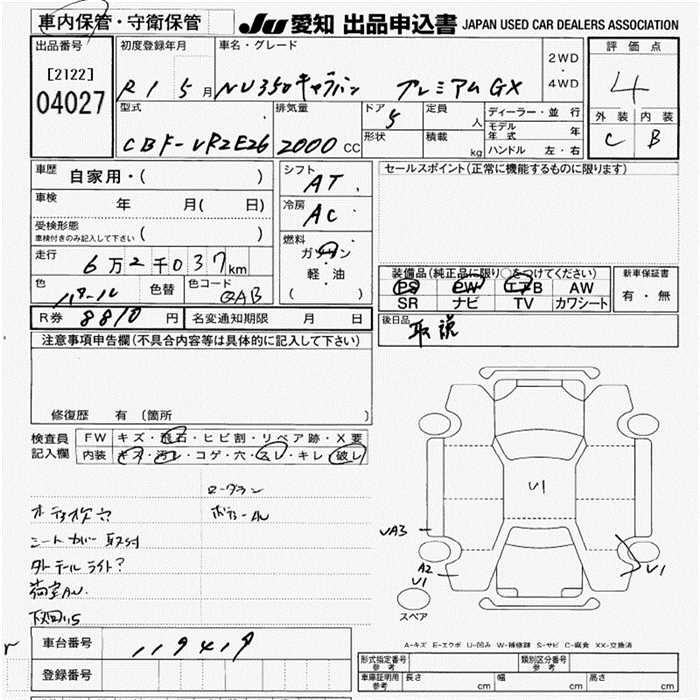 車内保管・守衛保管
JU 愛知 出品申込書 JAPAN USED CAR DEALERS ASSOCIATION
出品番号
[2122]
04027
初度登録年月
R1 5月
車名・グレード
NV350キャラバン プレミアムGX
2WD
・
4WD
評価点
4
外装 内装
C B
型式
CBF-VR2E26
排気量
2000 CC
ドア
5
形状
定員
人
積載
kg
ディーラー・並行
モデル年式 年
ハンドル 左・右
車歴 自家用・( )
車検 年 月( 日)
受検形態
車検付きのみ記入して下さい ( )
走行 6万2千037km
色 パール 色替 色コード QAB
R券 8810 円 名変通知期限 月 日
シフト
AT
冷房
AC
燃料
ガソリン
・
軽油
( )
セールスポイント(正常に機能するものに限ります)
装備品(純正品に限り○をつけてください)
PS PW エアB AW
SR ナビ TV カワシート
新車保証書
有・無
後日品
取説
注意事項申告欄(不具合内容等は具体的に記入して下さい)
修復歴 有(箇所 )
検査員
記入欄
FW キズ・飛石・ヒビ割・リペア跡・X要
内装 キズ・汚レ・コゲ・穴・スレ・キレ・破レ
シートカバー取付
外テールライト?
荷室AU
下回りS
U1
UA3
A2
U1
U1
スペア
A-キズ E-エクボ U-凹み W-補修跡 S-サビ C-腐食 XX-交換済
車台番号
119419
登録番号
形式指定番号
参考
類別区分番号
参考
車庫証明用
参考
長さ cm 幅 cm 高さ cm